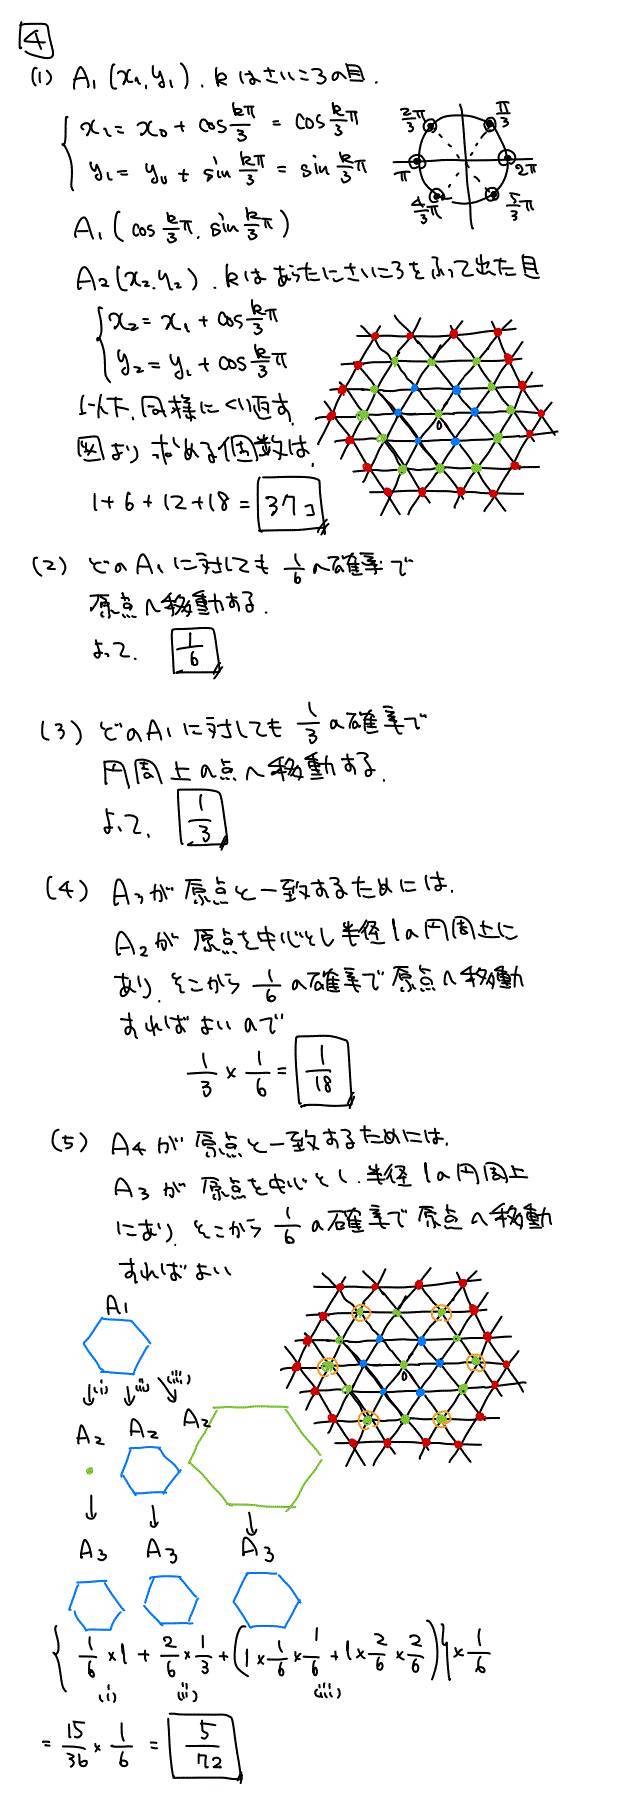 4
(1) A₁(x₁,y₁). kはさいころの目.
x₁ = x₀ + cos kπ/3 = cos kπ/3
y₁ = y₀ + sin kπ/3 = sin k/3 π
2/3 π
π/3
π
2π
4/3 π
5/3 π
A₁(cos k/3 π. sin k/3 π)
A₂(x₂.y₂). kはあらたにさいころをふって出た目
x₂ = x₁ + cos k/3 π
y₂ = y₁ + cos k/3 π
以下、同様にくり返す.
図より求める個数は.
0
1+6+12+18 = 37コ
(2) どのA₁に対しても 1/6 の確率で
原点へ移動する.
よって. 1/6
(3) どのA₁に対しても 1/3 の確率で
円周上の点へ移動する.
よって. 1/3
(4) A₃が原点と一致するためには.
A₂が原点を中心とし半径1の円周上に
あり. そこから 1/6 の確率で原点へ移動
すればよいので
1/3 × 1/6 = 1/18
(5) A₄が原点と一致するためには.
A₃が原点を中心とし. 半径1の円周上
にあり. そこから 1/6 の確率で原点へ移動
すればよい
A₁
↓(i) ↓(ii) ↘(iii)
A₂ A₂ A₂
0
↓ ↓ ↓
A₃ A₃ A₃
{ 1/6 × 1 + 2/6 × 1/3 + (1 × 1/6 × 1/6 + 1 × 2/6 × 2/6) } × 1/6
(i) (ii) (iii)
= 15/36 × 1/6 = 5/72